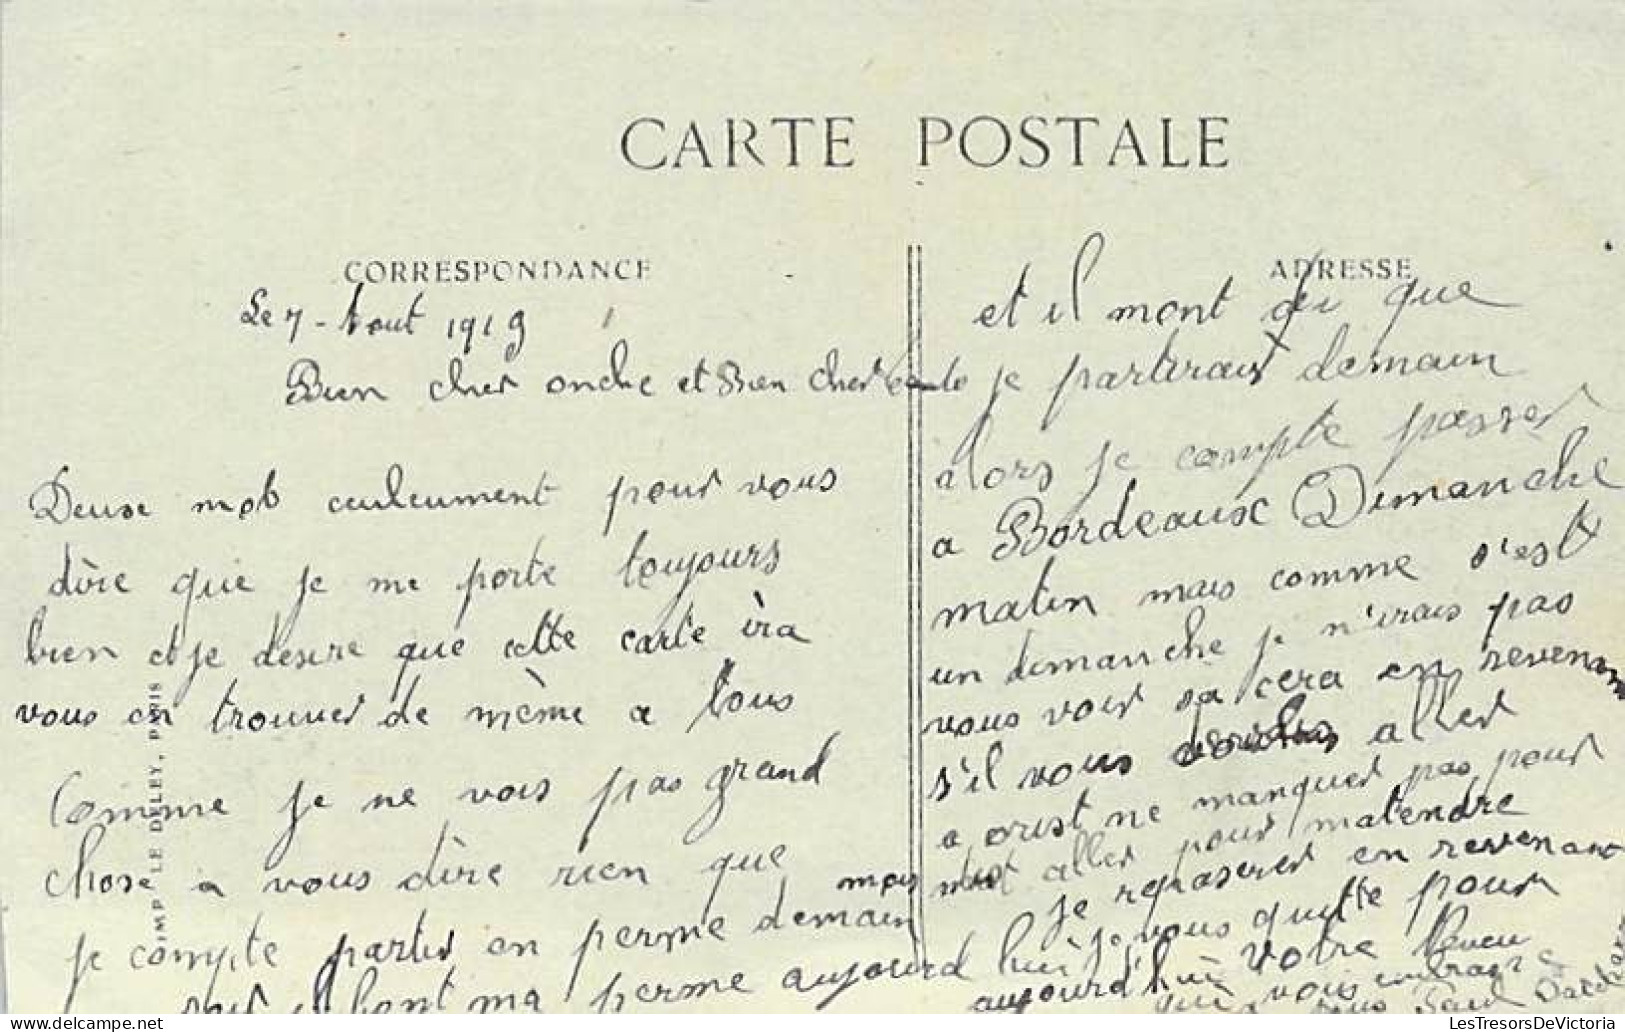 CARTE POSTALE
CORRESPONDANCE
Le 7 - Aout 1919
Bien cher oncle et Bien cher tante
Deuse mob ceuleument pour vous
dire que je me porte toujours
bien et je desire que cette carte ira
vous en trouver de même a tous
Comme je ne vois pas grand
chose a vous dire rien que
je compte partir en perme demain mais
soit il font ma perme aujourd hui
IMP LE DELEY, PARIS
ADRESSE
et il mont du que
je partirais demain
alors je compte passer
a Bordeaux Dimanche
matin mais comme s'est
un dimanche je n'irais pas
vous voir sa cera en revenan
s'il vous aller
a orist ne manquer pas pour
aller pour matendre
je reposerer en revenant
je vous quitte pour
aujourd'hui votre Neveu
qui vous embrasse
Paul
LesTresorsDeVictoria